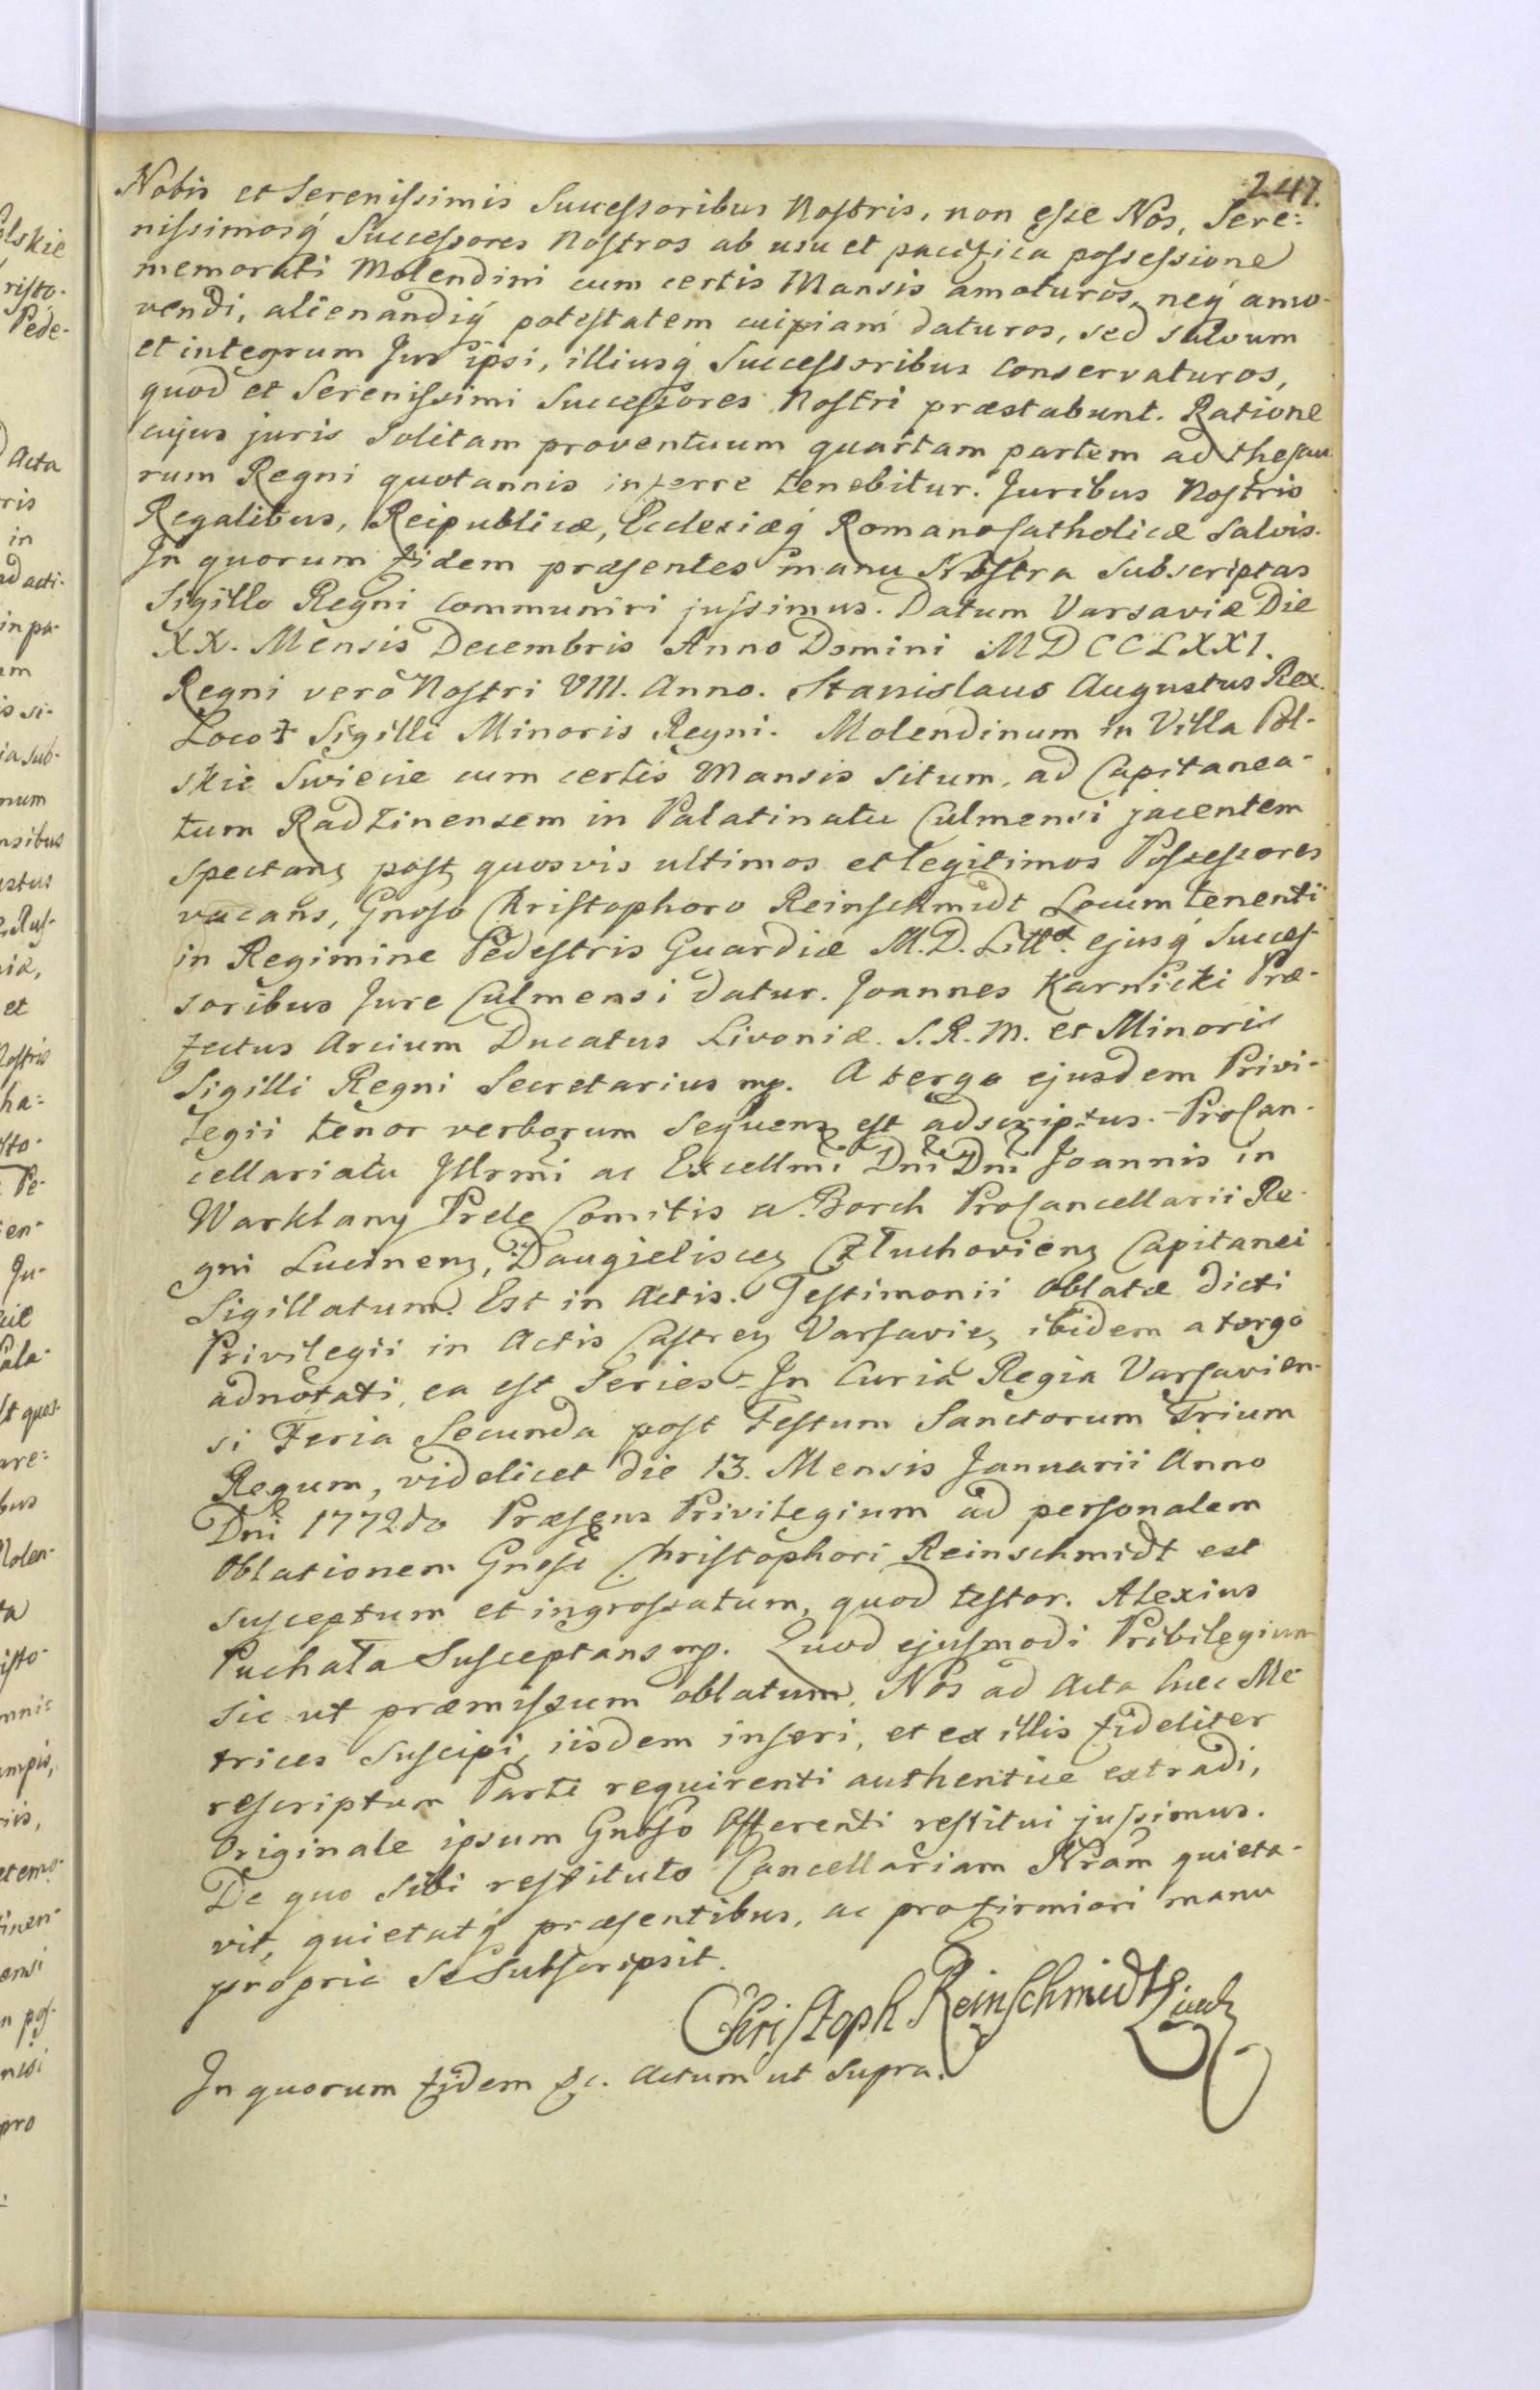 247.
Nobis et Serenissimis Successoribus Nostris, non esse Nos, Sere:
nissimosq́ Successores Nostros ab usu et pacifica possessione
memorati Molendini cum certis Mansis amoturos, neq́ amo-
vendi, alienandiq́ potestatem cuipiam daturos, sed salvum
et integrum Jus ipsi, illiusq́ Successoribus conservaturos,
quod et Serenissimi Successores Nostri præstabunt. Ratione
cujus juris Solitam proventuum quartam partem ad thesau
rum Regni quotannis inferre tenebitur. Juribus Nostris
Regalibus, Reipublicæ, Ecclesiæq́ Romano Catholicæ Salvis.
In quorum fidem præsentes manu Nostra Subscriptas
Sigillo Regni communiri jussimus. Datum Varsaviæ Die
XX. Mensis Decembris Anno Domini MDCCLXXI.
Regni verò Nostri VIII. Anno. Stanislaus Augustus Rex.
Loco ‡ Sigilli Minoris Regni. Molendinum in Villa Pol-
skie Swiecie cum certis Mansis situm, ad Capitanea-
tum Radzinensem in Palatinatu Culmensi jacentem
spectans post quosvis ultimos et legitimos Possessores
vacans, Gnoso Christophoro Reinschmidt Locum tenenti
in Regimine Pedestris Guardiæ M.D. Littæ. ejusq́ Succes-
soribus Jure Culmensi datur. Joannes Karnicki Præ-
fectus Arcium Ducatus Livoniæ. S.R.M. et Minoris
Sigilli Regni Secretarius mp. A tergo ejusdem Privi-
legii tenor verborum sequens est adscriptus. - ProCan-
cellariatu Jllrmi ac Excellmi Dni Dni Joannis in
Warklany Prele Comitis a Borch ProCancellarii Re-
gni Lucinens, Daugieliscens Człuchoviens Capitanei
Sigillatum. Est in Actis. Testimonii oblatæ dicti
Privilegii in Actis Castren Varsavien, ibidem a tergo
adnotati, ea est Series - In Curia Regia Varsavien-
si Feria Secunda post Festum Sanctorum Trium
Regum, videlicet die 13. Mensis Januarii Anno
Dni 1772do Præsens Privilegium ad personalem
Oblationem Gnosi Christophori Reinschmidt est
susceptum et ingrossatum, quod testor. Alexius
Puchała Susceptans mp. Quod ejusmodi Pribilegium
sic ut præmissum oblatum, Nos ad Acta hæc Me
trices Suscipi, iisdem inseri, et ex illis fideliter
rescriptum Parti requirenti authentice extradi,
Originale ipsum Gnoso Offerenti restitui jussimus.
De quo Sibi restituto Cancellariam Nram quieta-
vit, quietatq́ præsentibus, ac pro firmiori manu
propria Se Subscripsit.
Christoph Reinschmidt
In quorum fidem &c. Actum ut Supra.